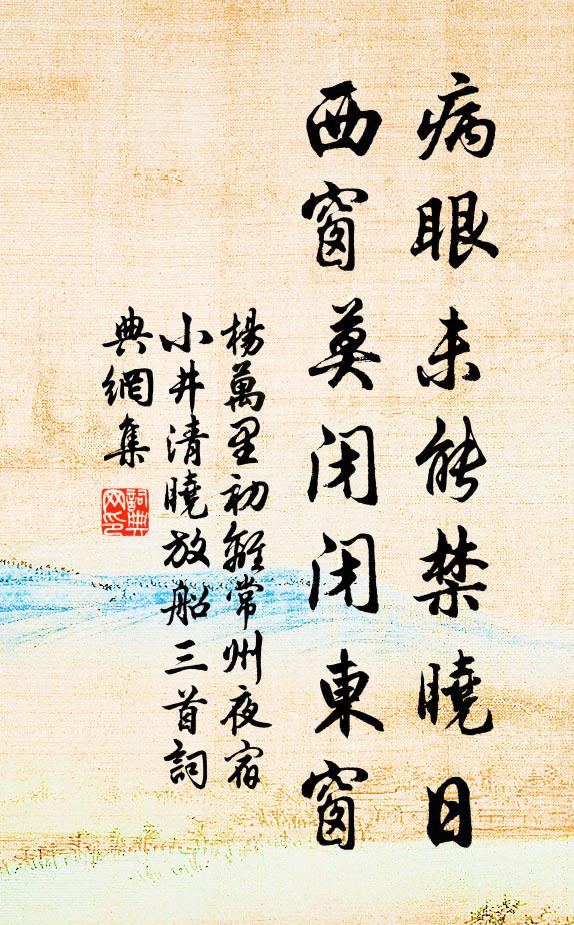 病眼未能禁曉日
西窗莫閉閉東窗
楊萬里初離常州夜宿
小井清曉放船三首詞
典網集
詞典
网印